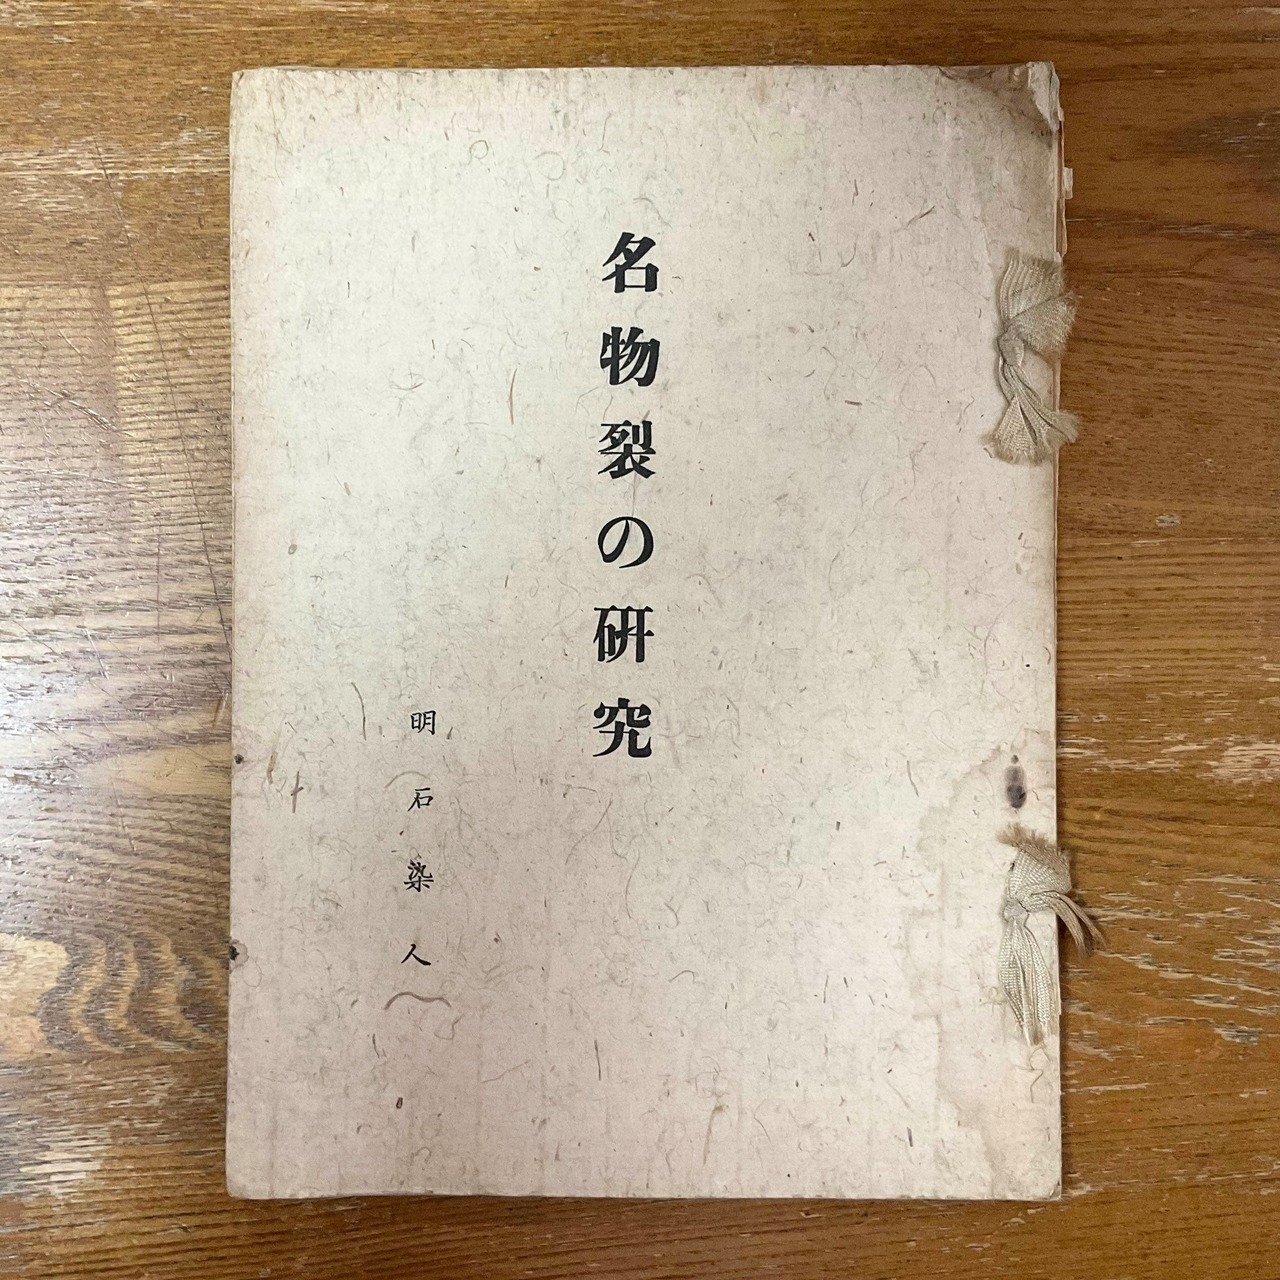 名物裂の研究
明石染人